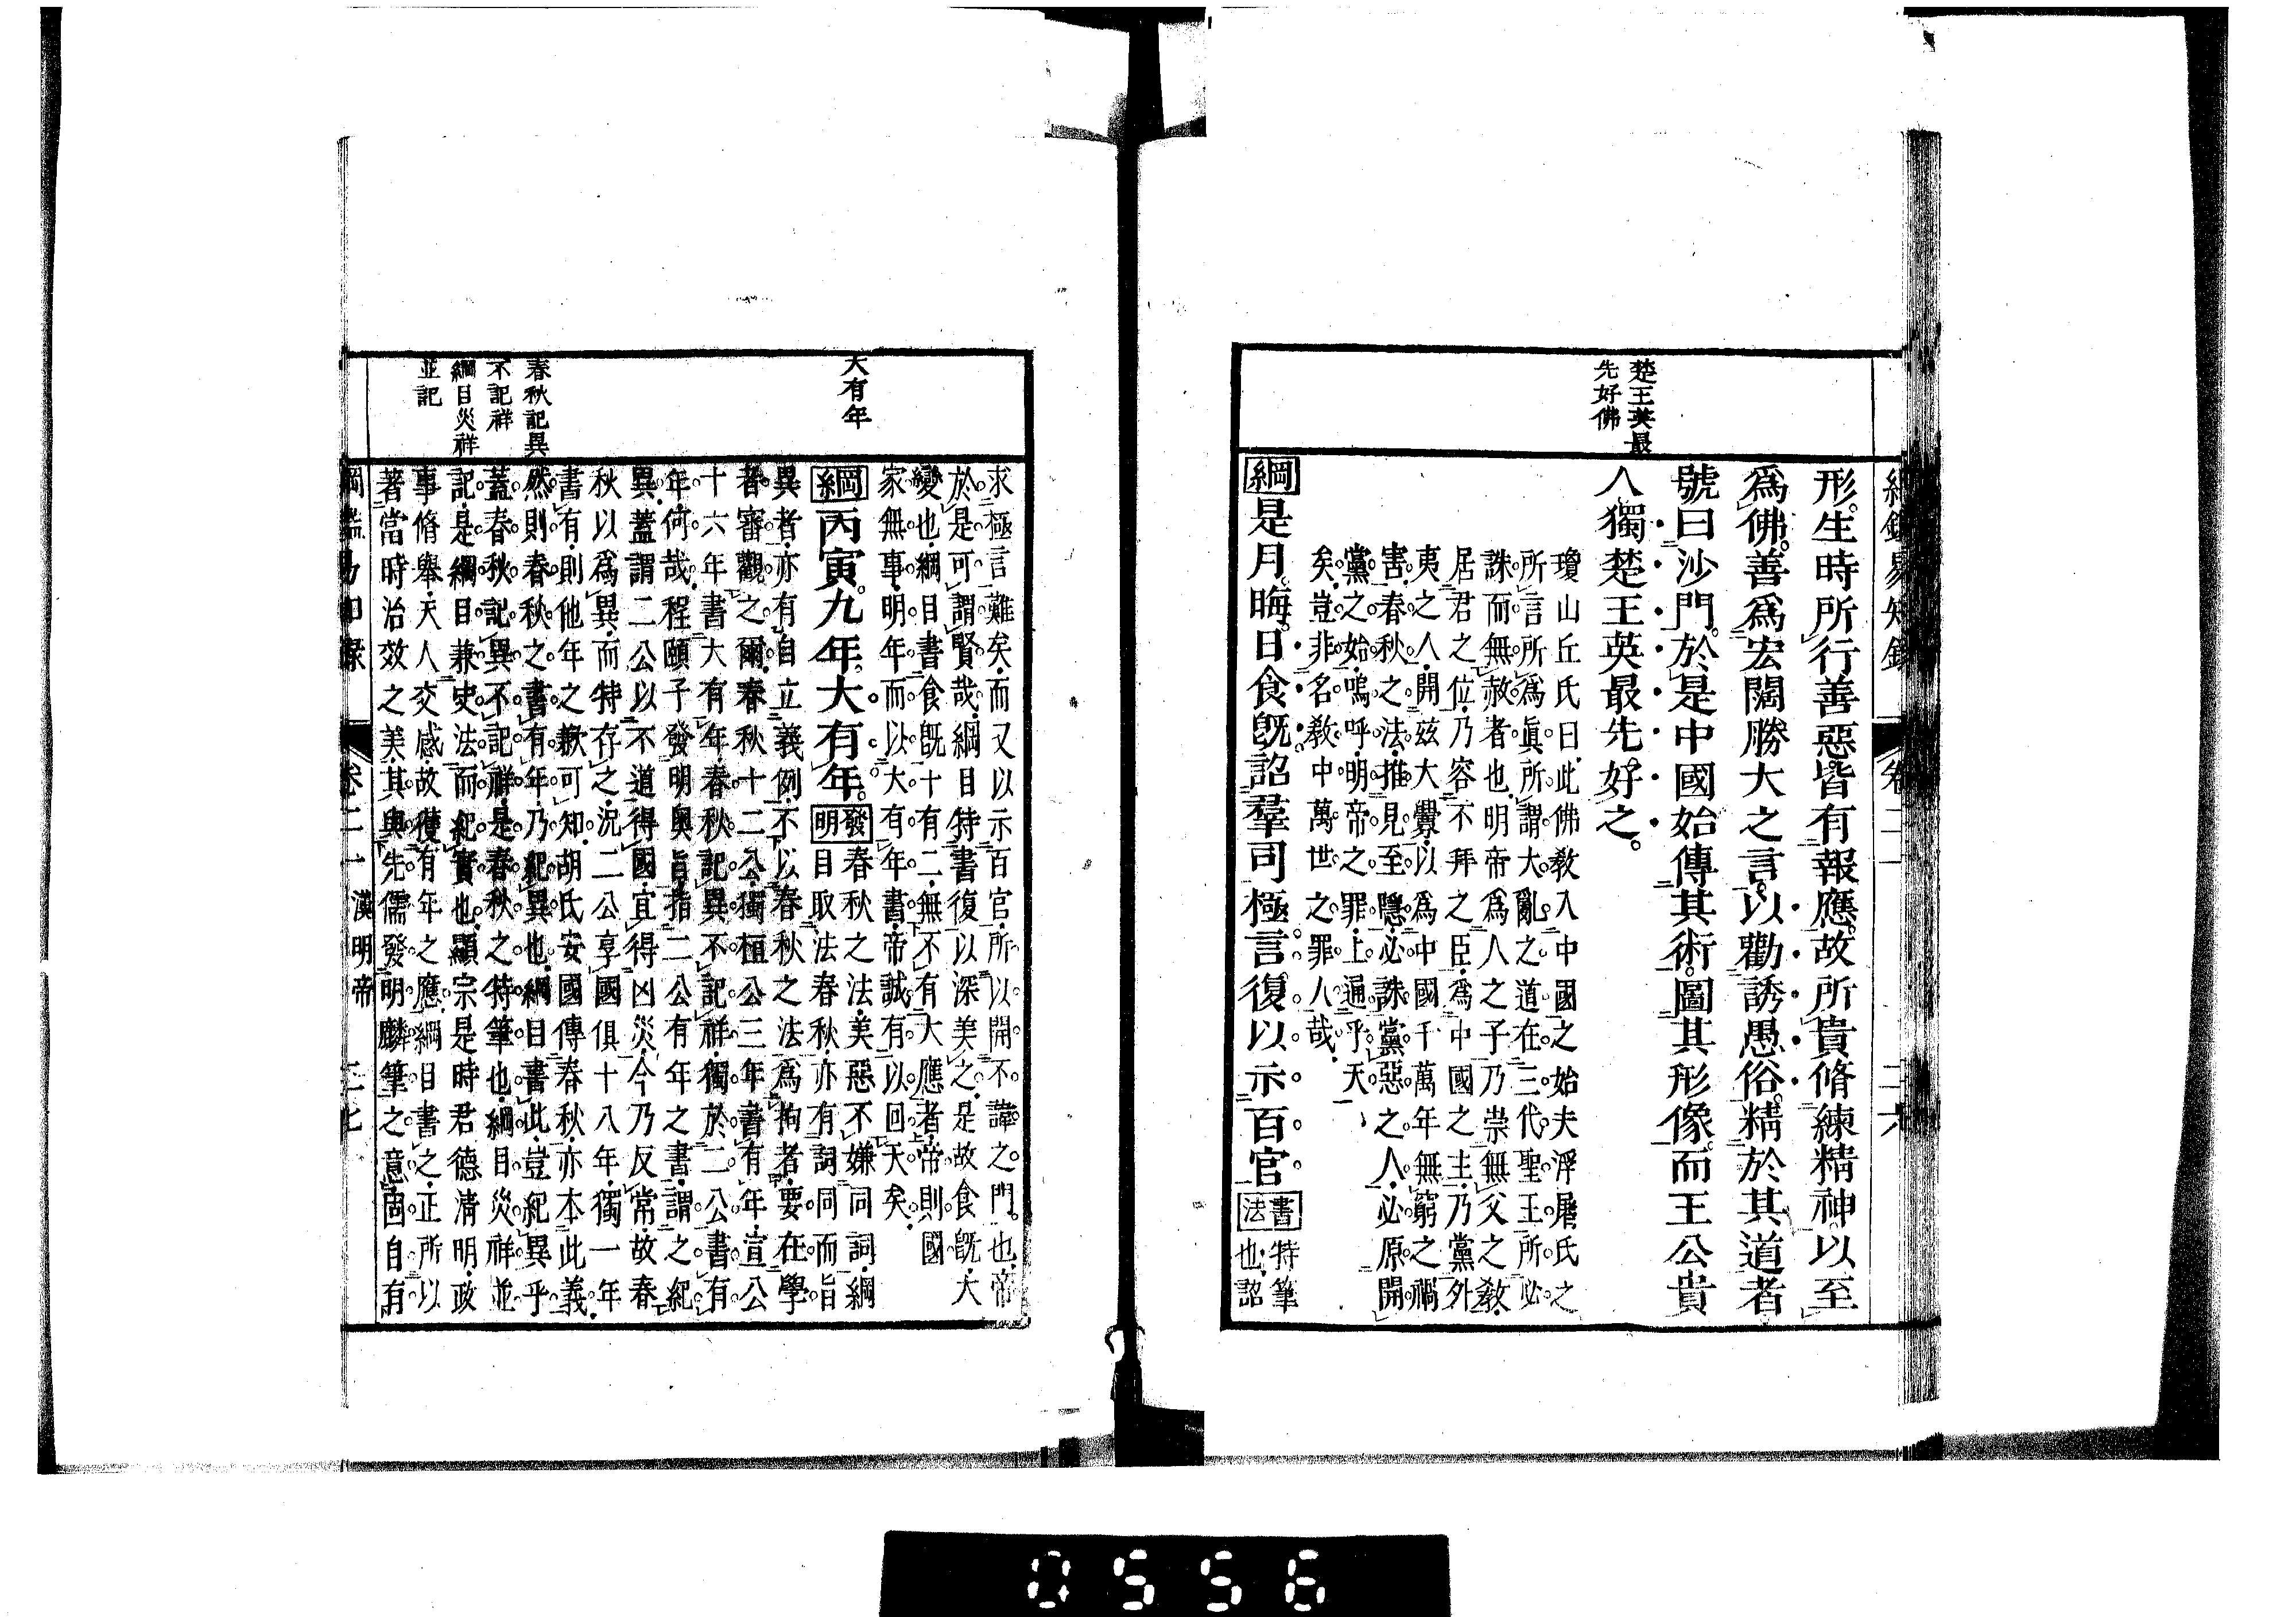 楚王英最
先好佛
形生時所行善惡皆有報應故所貴脩練精神以至
爲佛善爲宏闊勝大之言以勸誘愚俗精於其道者
號曰沙門於是中國始傳其術圖其形像而王公貴
人獨楚王英最先好之
瓊山丘氏曰此佛教入中國之始夫浮屠氏之
所言所爲眞所謂大亂之道在三代聖王所必
誅而無赦者也明帝爲人之子乃崇無父之教
居君之位乃容不拜之臣爲中國之主乃黨外
夷之人開茲大釁以爲中國千萬年無窮之禍
害春秋之法推見至隱必誅黨惡之人必原開
黨之始嗚呼明帝之罪上通乎天
矣豈非名教中萬世之罪人哉
綱是月晦日食旣詔羣司極言復以示百官書法特筆也詔
綱鑑易知錄 卷二一 二六
大有年
春秋記異
不記祥
綱目災祥
並記
求極言難矣而又以示百官所以開不諱之門也帝
於是可謂賢哉綱目特書復以深美之是故食旣大
變也綱目書食旣十有二無不有大應者帝則國
家無事明年而以大有年書帝誠有以回天矣
綱丙寅九年大有年發明春秋之法美惡不嫌同詞綱目取法春秋亦有詞同而旨
異者亦有自立義例不以春秋之法爲拘者要在學
者審觀之爾春秋十二公獨桓公三年書有年宣公
十六年書大有年春秋記異不記祥獨於二公書有
年何哉程頤子發明奧旨指二公有年之書謂之紀
異蓋謂二公以不道得國宜得凶災今乃反常故春
秋以爲異而特存之況二公享國俱十八年獨一年
書有則他年之歉可知胡氏安國傳春秋亦本此義
然則春秋之書有年乃紀異也綱目書此豈紀異乎
蓋春秋記異不記祥是春秋之特筆也綱目災祥並
記是綱目兼史法而紀實也顯宗是時君德清明政
事脩舉天人交感故獲有年之應綱目書之正所以
著當時治效之美其與先儒發明麟筆之意固自有
綱鑑易知錄 卷二一 漢明帝 二七
0556